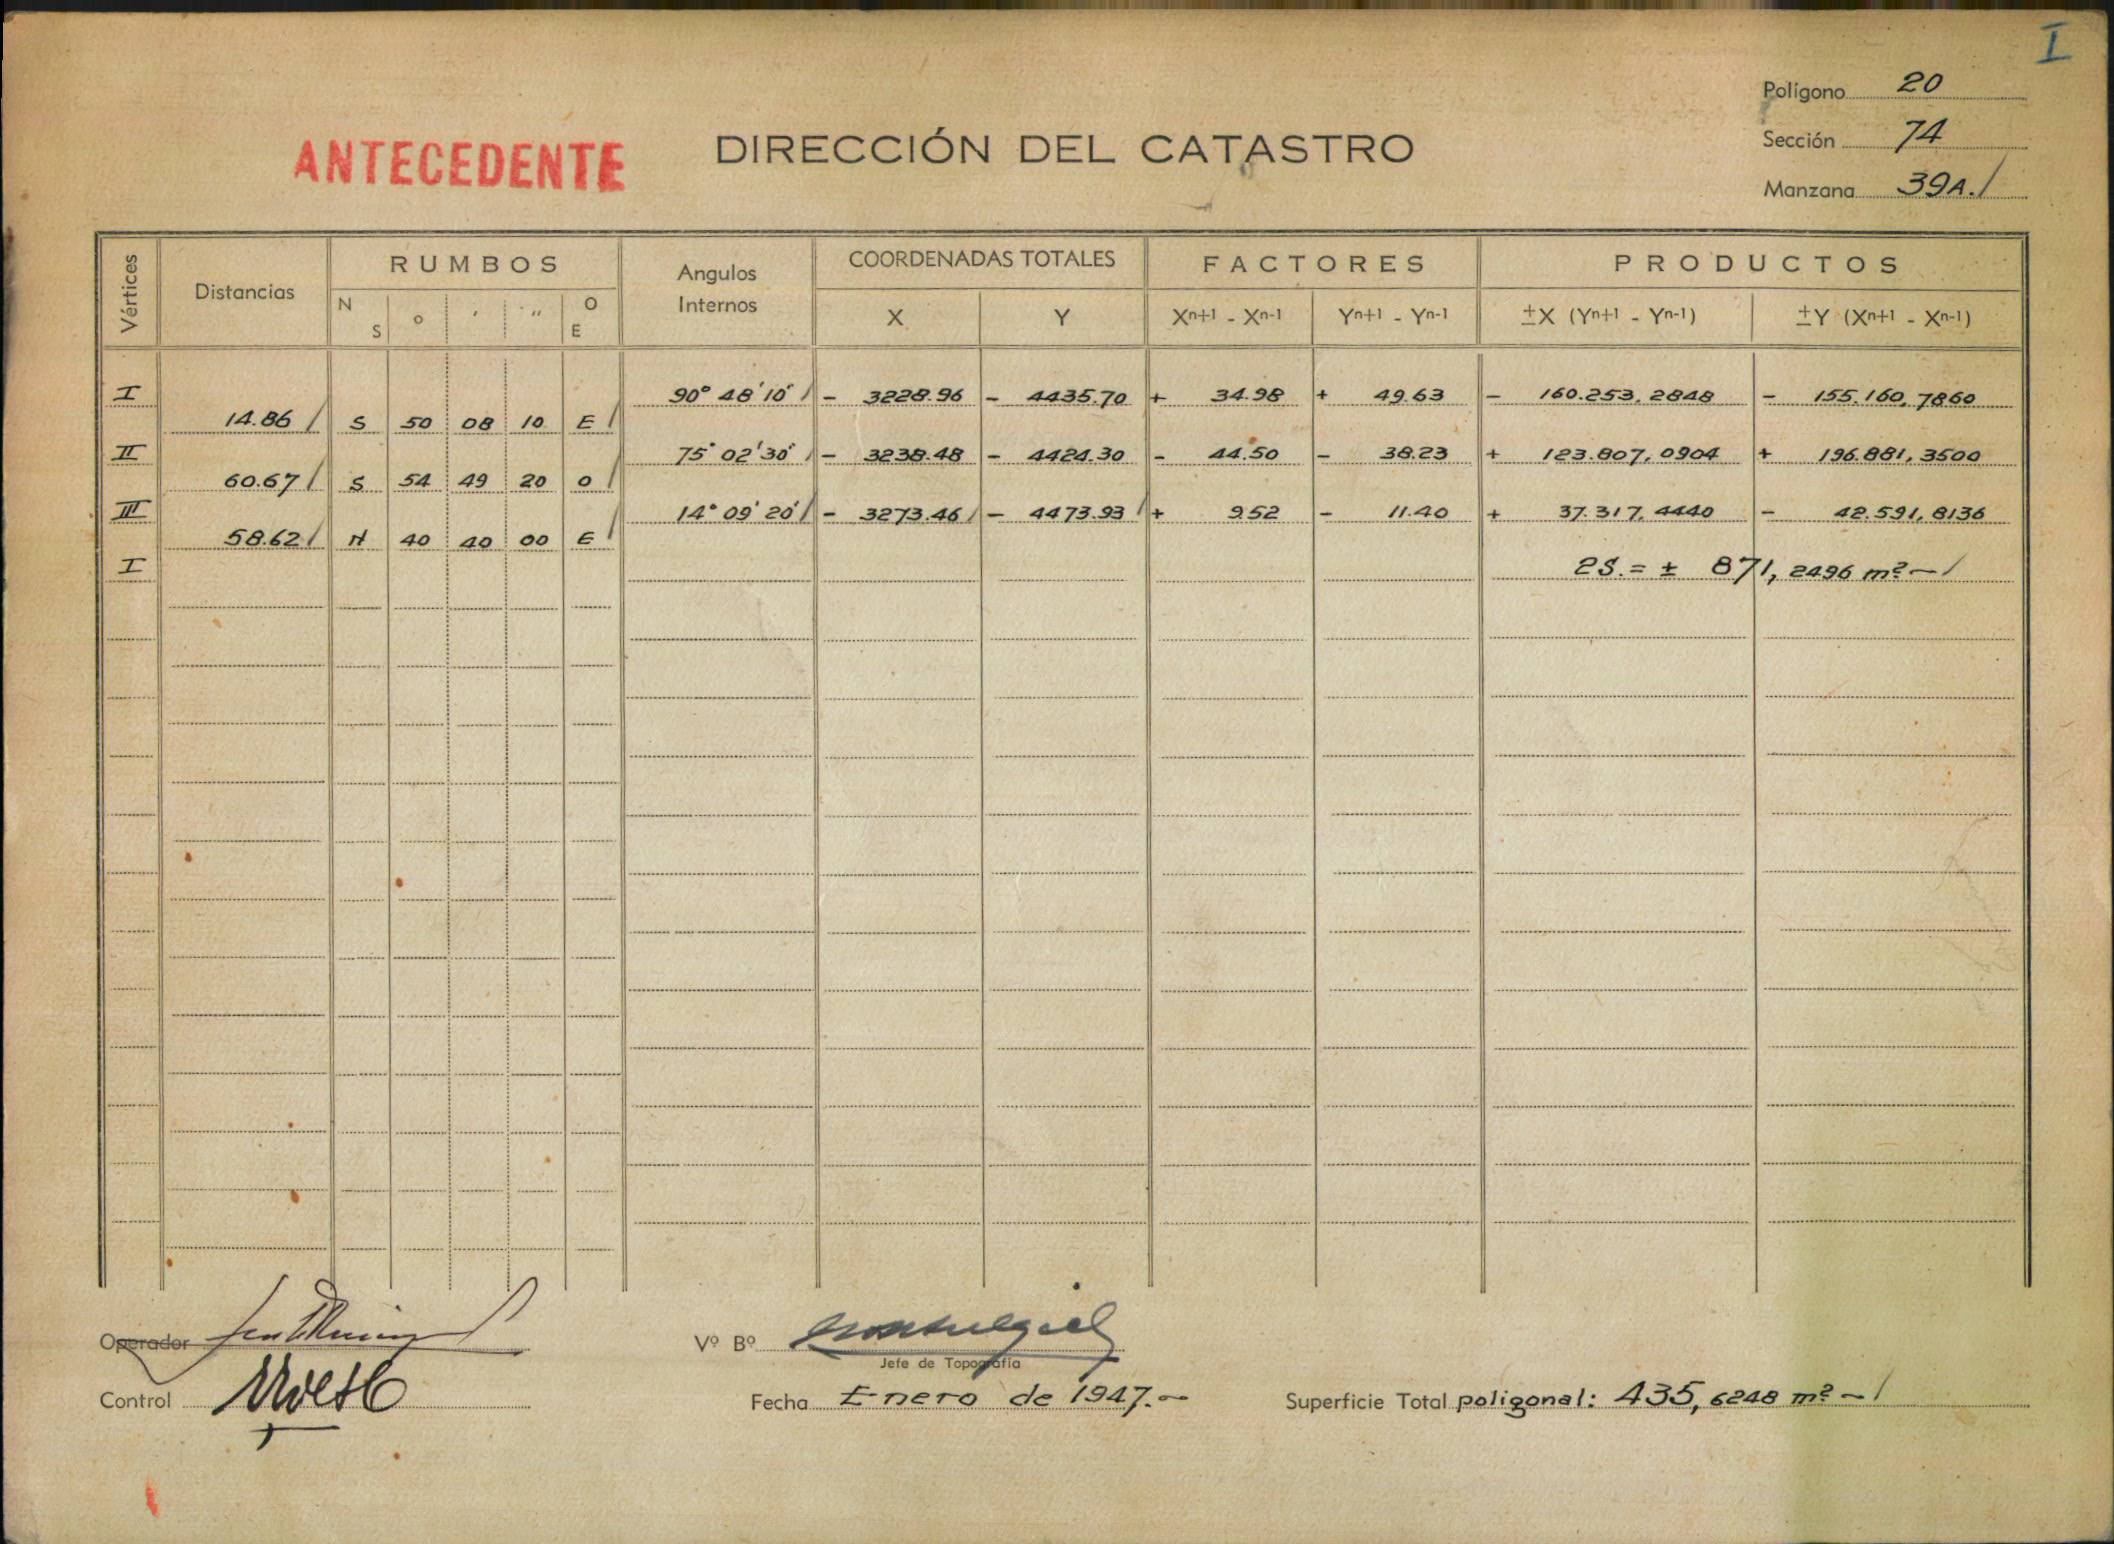 I
Polígono 20
ANTECEDENTE DIRECCIÓN DEL CATASTRO
Sección 74
Manzana 39A. /
Vértices Distancias RUMBOS Angulos Internos COORDENADAS TOTALES FACTORES PRODUCTOS
N S o ' '' O E X Y Xn+1 - Xn-1 Yn+1 - Yn-1 ±X (Yn+1 - Yn-1) ±Y (Xn+1 - Xn-1)
I 90° 48' 10" / - 3228.96 - 4435.70 + 34.98 + 49.63 - 160.253,2848 - 155.160,7860
14.86 / S 50 08 10 E /
II 75° 02' 30" / - 3238.48 - 4424.30 - 44.50 - 38.23 + 123.807,0904 + 196.881,3500
60.67 / S 54 49 20 O /
III 14° 09' 20" / - 3273.46 / - 4473.93 / + 9.52 - 11.40 + 37.317,4440 - 42.591,8136
58.62 / N 40 40 00 E /
I 2S. = ± 871,2496 m² - /
Operador
Vº Bº
Jefe de Topografía
Control
Fecha Enero de 1947.-
Superficie Total poligonal: 435,6248 m² - /